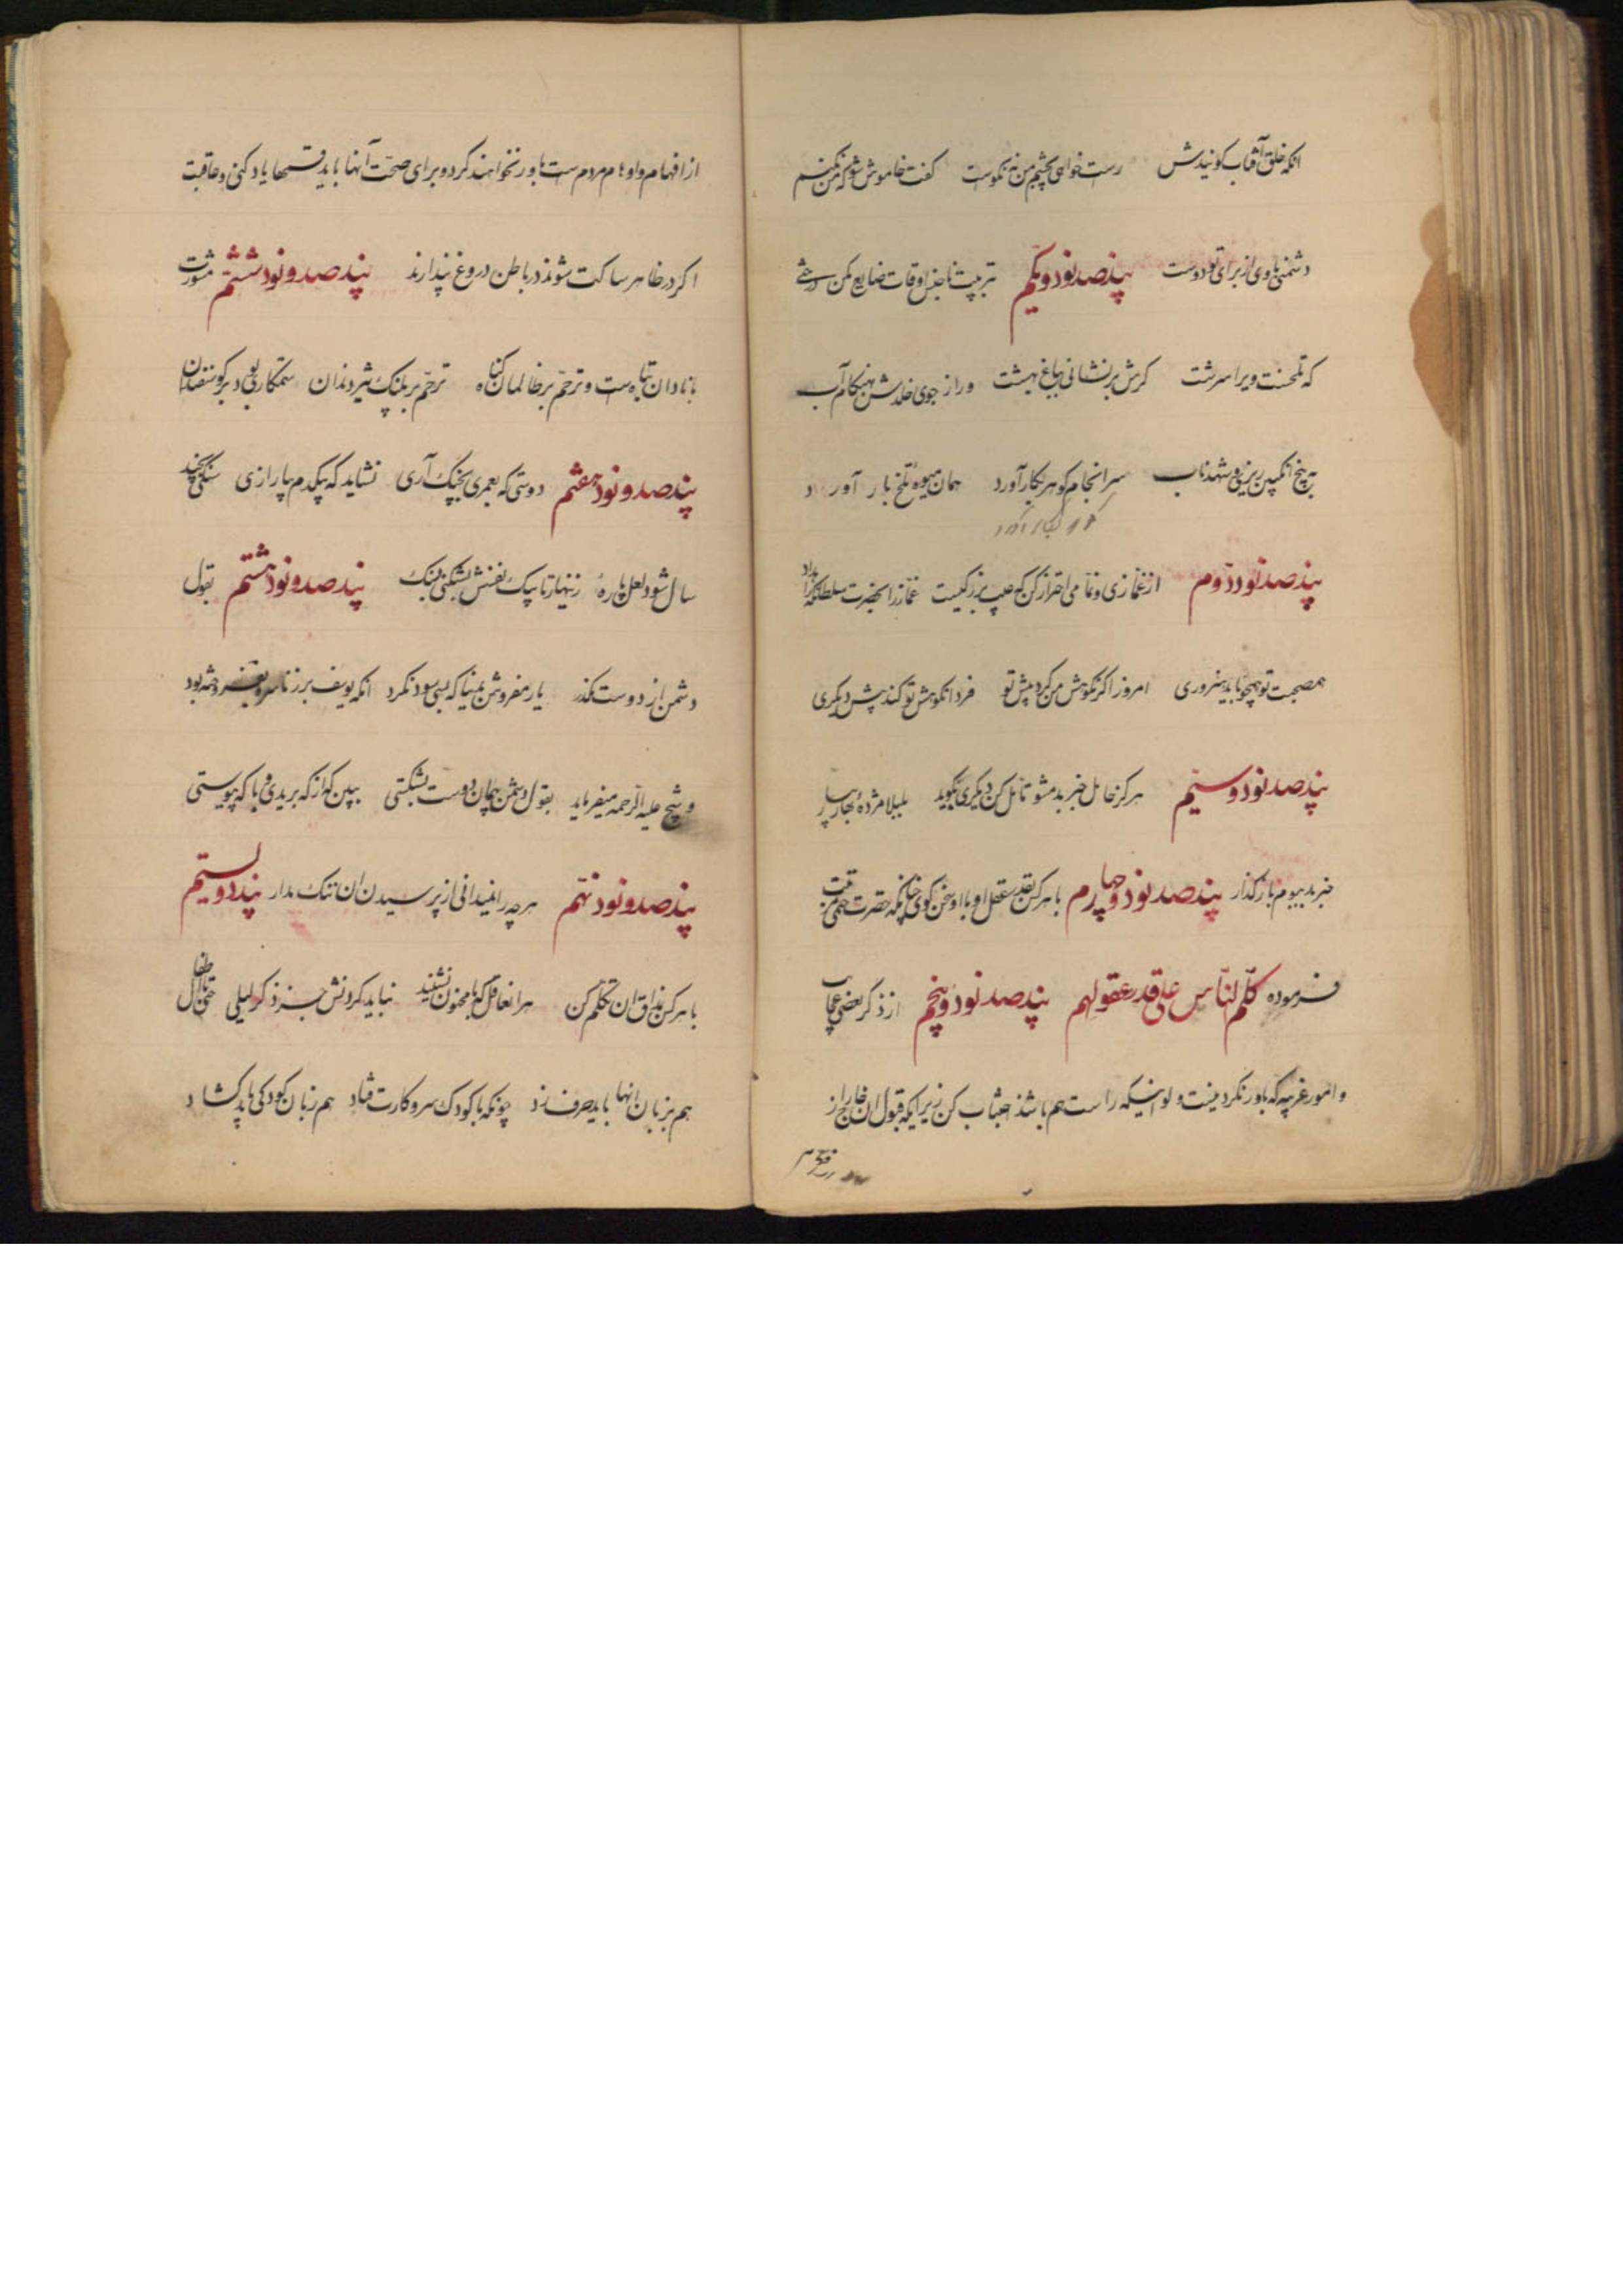 آنکه خلق آفتاب گویندش راست خواهی بچشم من نه نکوست گفت خاموش شو که من نکنم
دشمنی با وی از برای تو دوست پند صد نود و یکم تربیت ناجنس اوقات ضایع مکن درختی
که تلخست ویرا سرشت گرش برنشانی بباغ بهشت ور از جوی خلدش بهنگام آب
به بیخ انگبین ریزی و شهد ناب سرانجام گوهر بکار آورد همان میوه تلخ بار آورد
گوهر بکار آورد
پند صد نود دوم از غمازی و نمامی احتراز کن که عیب بزرگیست غماز را بحضرت سلطان که راه داد
همصحبت تو همچو تو باید هنروری امروز اگر نکوهش من کرد پیش تو فردا نکوهش تو کند پیش دیگری
پند صد نود و سیم هرگز حامل خبر بد مشو تأمل کن دیگری بگوید بلبلا مژده بهار بیار
خبر بد ببوم بازگذار پند صد نود و چهارم با هرکس بقدر عقل او با او سخن گوی چنانکه حضرت ختمی مرتبت
فرموده کلّم النّاس علی قدر عقولهم پند صد نود و پنجم از ذکر بعضی عجایب
و امور غریبه که باور نکردنیست ولو اینکه راست هم باشد اجتناب کن زیرا که قبول آن خارج از
از افهام و اوهام مردم است باور نخواهند کرد و برای صحت آنها باید قسمها یاد کنی و عاقبت
اگر در ظاهر ساکت شوند در باطن دروغ پندارند پند صد و نود ششم مشورت
با نادان تباه است و ترحم بر ظالمان گناه ترحم بر پلنگ تیز دندان ستمکاری بود بر گوسفندان
پند صد و نود هفتم دوستی که بعمری بچنگ آری نشاید که بیکدم بیازاری سنگی بچند
سال شود لعل پاره زنهار تا بیک نفسش نشکنی بسنگ پند صد و نود هشتم بقول
دشمن از دوست مگذر یار مفروش بدنیا که بسی سود نکرد آنکه یوسف بزر ناسره بفروخته بود
و شیخ علیه الرحمه میفرماید بقول دشمن پیمان دوست بشکستی ببین که از که بریدی و با که پیوستی
پند صد و نود نهم هرچه را نمیدانی از پرسیدن آن ننگ مدار پند دویستم
با هرکس بمذاق آن تکلم کن هر آن عاقل که با مجنون نشیند نباید کردنش جز ذکر لیلی حتی با اطفال
هم بزبان آنها باید حرف زد چونکه با کودک سر و کارت فتاد هم زبان کودکی باید گشاد